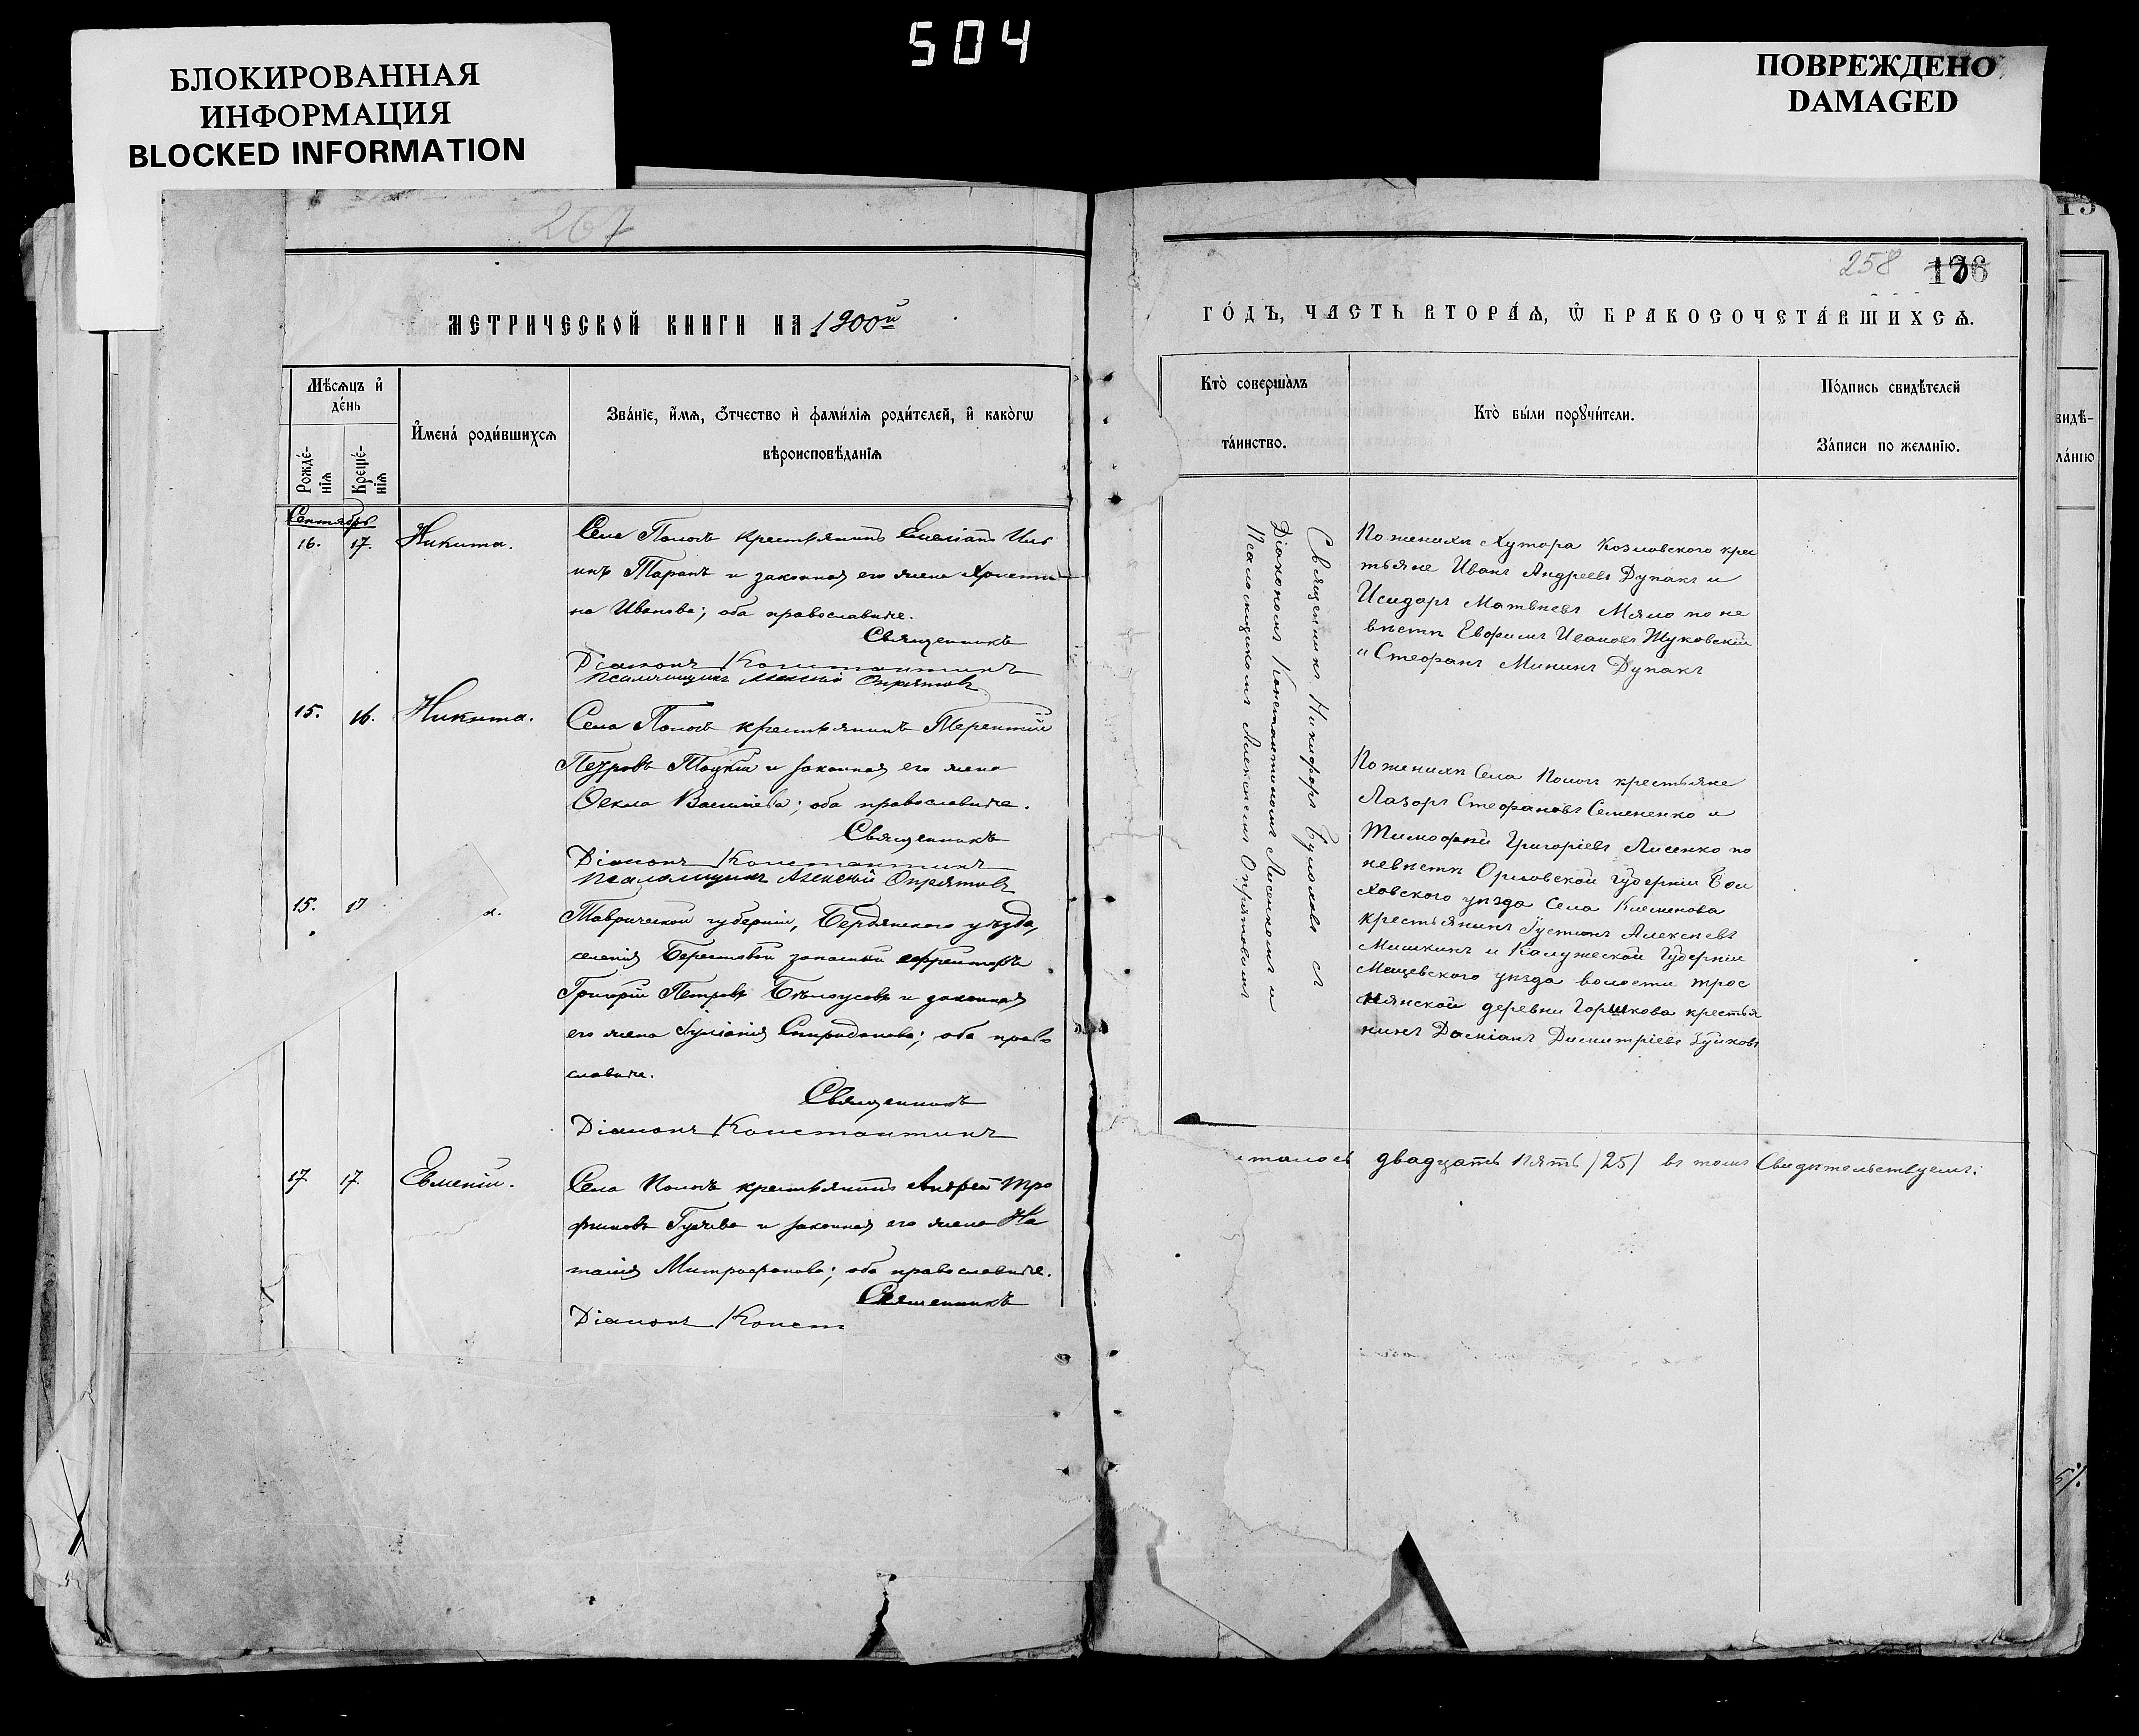 504
БЛОКИРОВАННАЯ
ИНФОРМАЦИЯ
BLOCKED INFORMATION
ПОВРЕЖДЕНО
DAMAGED
267
МЕТРИЧЕСКОЙ КНИГИ НА 1900й
Мѣсѧцъ и҆ де́нь
Рожде́-
нїѧ
Креще́-
нїѧ
И҆мена̀ роди́вшихсѧ
Зва́нїе, и҆́мѧ, ѻ҆́тчество и҆ фами́лїѧ роди́телей, и҆ како́гѡ
вѣроисповѣ́данїѧ
Сентябрь
16. 17. Никита.
Села Пологъ крестьянинъ Емеліанъ Иль
инъ Таранъ и законная его жена Христи
на Иванова; оба православные.
Священникъ
Діаконъ Константинъ
Псаломщикъ Алексій Опрятовъ
15. 16. Никита.
Села Пологъ крестьянинъ Терентій
Петровъ Тоцкій и законная его жена
Ѳекла Васильева; оба православные.
Священникъ
Діаконъ Константинъ
Псаломщикъ Алексій Опрятовъ
15. 17
Таврической губерніи, Бердянскаго уѣзда,
селенія Берестовой запасный ефрейторъ
Григорій Петровъ Бѣлоусовъ и законная
его жена Іуліанія Спиридонова; оба право
славные.
Священникъ
Діаконъ Константинъ
17 17 Евменій.
Села Пологъ крестьянинъ Андрей Тро
фимовъ и законная его жена На
талія Митрофанова; оба православные.
Священникъ
Діаконъ Конст
258 126
ГО́ДЪ, ЧАСТЬ ВТОРА́Ѧ, Ѡ҆ БРАКОСОЧЕТА́ВШИХСѦ.
Кто̀ соверша̀лъ
та́инство.
Кто̀ бы́ли порꙋчи́тели.
По́дпись свидѣ́телей
За́писи по жела́нїю.
Священникъ Никифоръ съ
Діакономъ Константиномъ Лисенкомъ и
Псаломщикомъ Алексѣемъ Опрятовымъ
По женихѣ Хутора Козловского крес
тьяне Иванъ Андреевъ Дупакъ и
Исидоръ Матвѣевъ Мяло по не
вѣстѣ Евфимъ Ивановъ Жуковскій
и Стефанъ Мининъ Дупакъ
По женихѣ Села Пологъ крестьяне
Лазарь Стефановъ Семененко и
Тимофѣй Григоріевъ Лисенко по
невѣстѣ Орловской Губерніи Бол
ховского уѣзда Села Клеменова
крестьянинъ Іустинъ Алексѣевъ
Мишкинъ и Калужской Губерніи
Мещевского уѣзда волости трос
нянской деревни Горшкова крестья
нинъ Даміанъ Димитріевъ Зуйковъ
талось двадцать пять (25) въ томъ Свидѣтельствуемъ:
видѣ-
ла́нїю